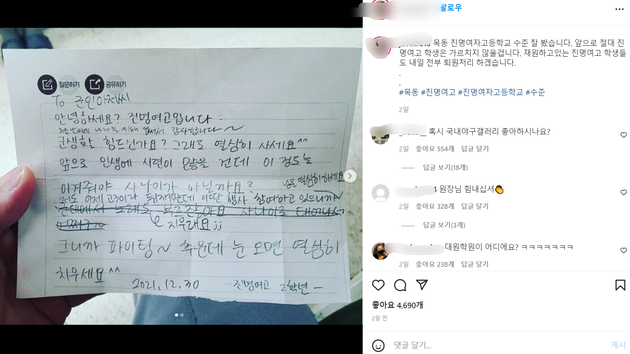 질문하기 공유하기
To 군인아저씨
안녕하세요? 진명여고입니다
군생활 힘드신가요? 그래도 열심히 사세요^^
앞으로 인생에 시련이 많을 건데 이 정도는
이겨줘야 사나이가 아닐까요?
저도 이제 고3이라 뒤지겠는데 이딴 행사 참여하고 있으니까
군대에서 노래도 부르잖아요 사나이로 태어나서
지우래요;;
그니까 파이팅~ 추운데 눈 오면 열심히
치우세요^^
2021.12.30 -진명여고 2학년-
팔로우
목동 진명여자고등학교 수준 잘 봤습니다. 앞으로 절대 진명여고 학생은 가르치지 않을겁니다. 재원하고있는 진명여고 학생들도 내일 전부 퇴원처리 하겠습니다.
.
.
#목동 #진명여고 #진명여자고등학교 #수준
2일
혹시 국내야구갤러리 좋아하시나요?
2일 좋아요 554개 답글 달기
답글 보기(18개)
4 원장님 힘내십셔👏
2일 좋아요 328개 답글 달기
답글 보기(3개)
대원학원이 어디에요? ㅋㅋㅋㅋㅋㅋㅋ
2일 좋아요 238개 답글 달기
좋아요 4,690개
2일 전
댓글 달기...
게시